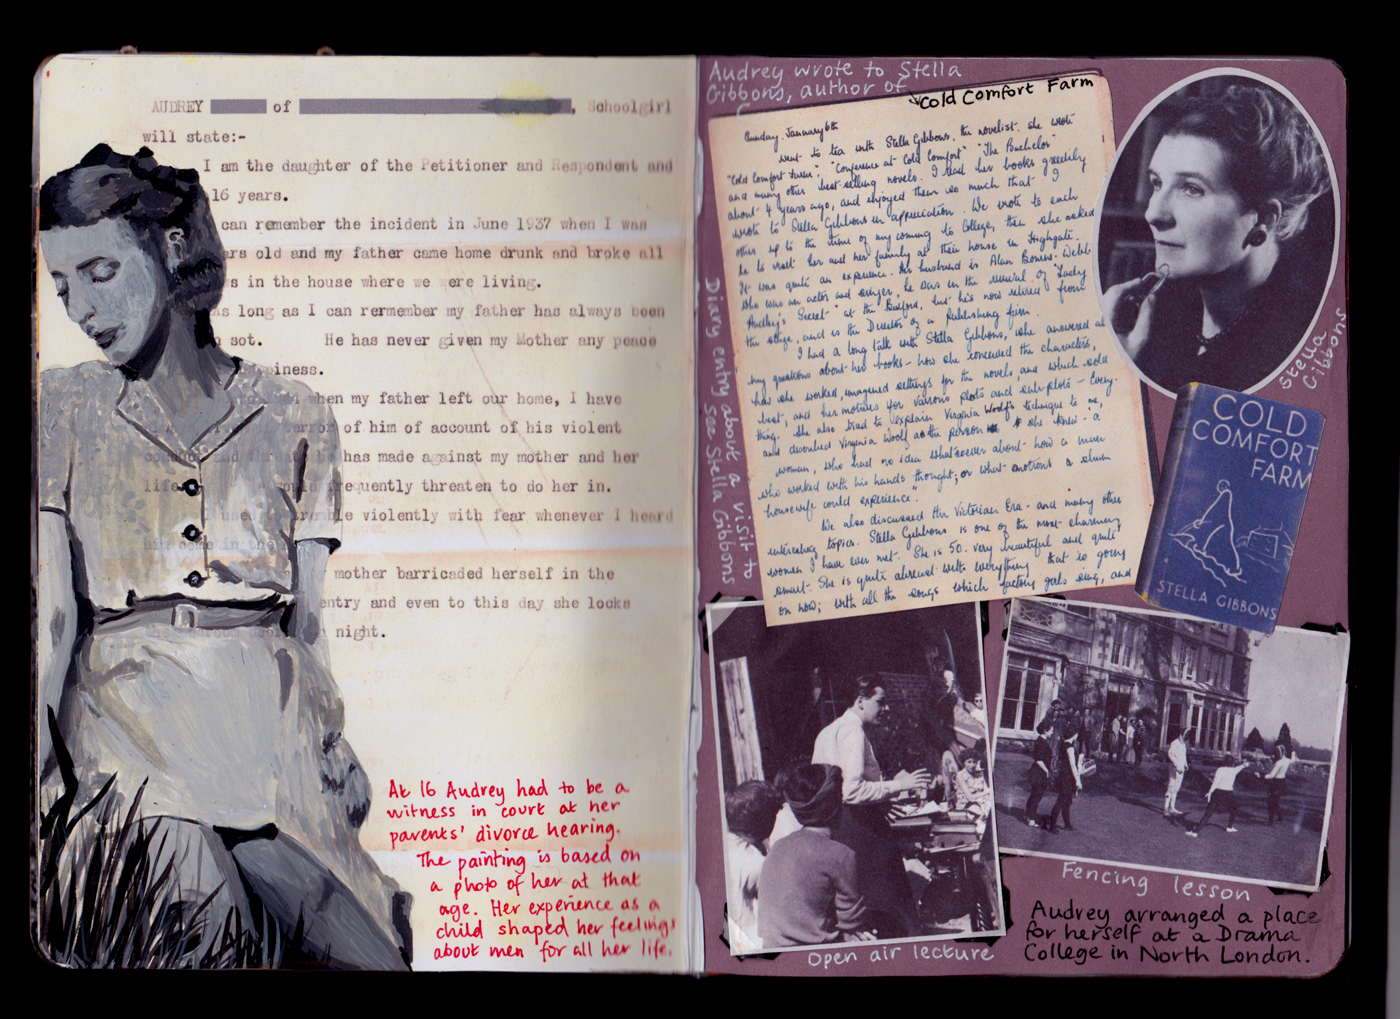 AUDREY of , Schoolgirl
will state:-
I am the daughter of the Petitioner and Respondent and
16 years.
can remember the incident in June 1937 when I was
ars old and my father came home drunk and broke all
s in the house where we were living.
as long as I can rermember my father has always been
sot. He has never given my Mother any peace
iness.
when my father left our home, I have
terror of him of account of his violent
he has made against my mother and her
life. would frequently threaten to do her in.
I used to tremble violently with fear whenever I heard
him come in the
mother barricaded herself in the
entry and even to this day she locks
night.
At 16 Audrey had to be a
witness in court at her
parents' divorce hearing.
The painting is based on
a photo of her at that
age. Her experience as a
child shaped her feelings
about men for all her life.
Audrey wrote to Stella
Gibbons, author of
Cold Comfort Farm
Sunday January 6th
went to tea with Stella Gibbons, the novelist. She wrote
"Cold Comfort Farm". "Conference at Cold Comfort" "The Bachelor"
and many other best-selling novels. I read her books greedily
about 4 years ago, and enjoyed them so much that I
wrote to Stella Gibbons in appreciation. We wrote to each
other up to the time of my coming to College, then she asked
me to visit her and her family at their house in Highgate.
It was quite an experience. Her husband is Alan Bourne-Webb
who was an actor and singer, he was in the revival of "Lady
Audley's Secret" at the Bedford, but he's now retired from
the stage, and is the Director of a Publishing firm.
I had a long talk with Stella Gibbons, she answered all
my questions about her books - how she conceived the characters,
how she worked, imagined settings for the novels, and which sold
best, and her motives for various plots and sub-plots - Every-
thing. She also tried to explain Virginia Woolf's technique to me,
and described Virginia Woolf as the person she knew - "a
woman, who had no idea whatsoever about how a man
who worked with his hands thought, or what emotions a
housewife could experience".
We also discussed the Victorian Era - and many other
interesting topics. Stella Gibbons is one of the most charming
women I have ever met. She is 50. very beautiful and quite
smart. She is quite abreast with everything that is going
on now; with all the songs which factory girls sing, and
Diary entry about a visit to
see Stella Gibbons
Stella
Gibbons
COLD
COMFORT
FARM
STELLA GIBBONS
Open air lecture
Fencing lesson
Audrey arranged a place
for herself at a Drama
College in North London.